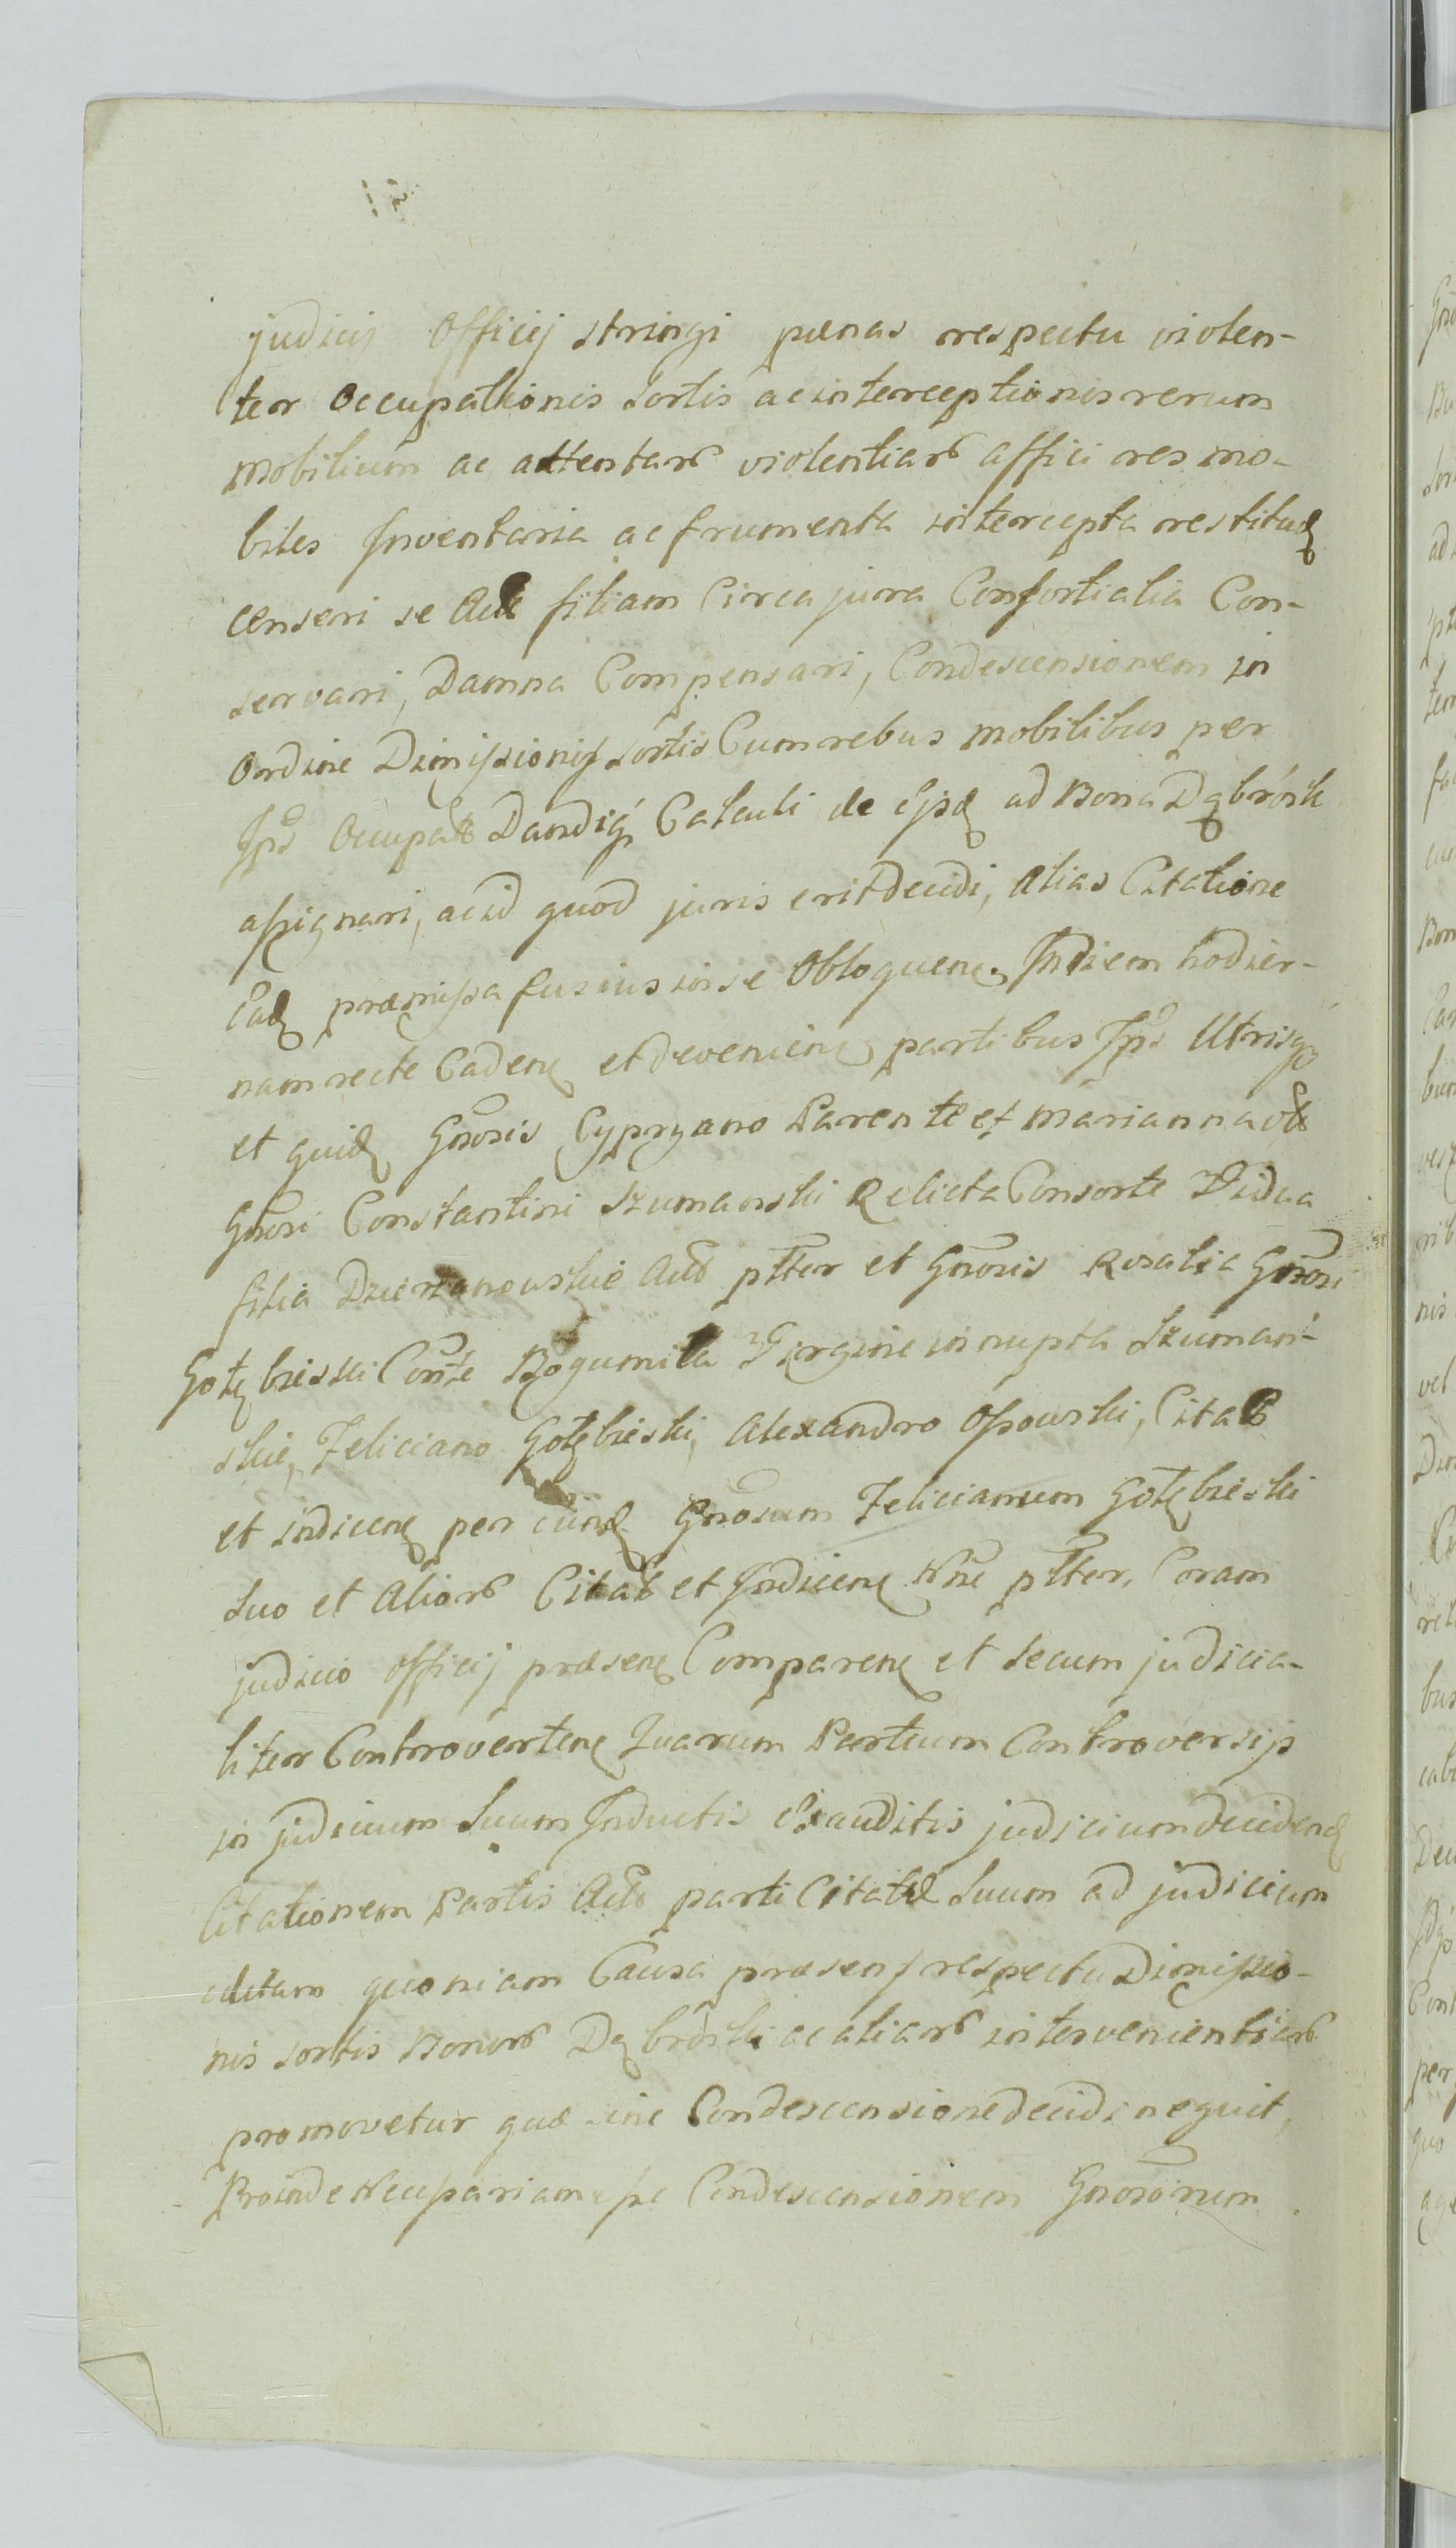 judicij Officij stringi pænas respectu violen-
ter Occupationis Sortis ac interceptionis rerum
Mobilium ac attentar violentiar affici res mo-
biles Inventaria ac frumenta intercepta restitued
censeri se Act filiam Circa jura Consortialia Con-
servari, Damna Compensari, Condescensionem in
Ordine Dimissionis sortis Cum rebus mobilibus per
Ips Occupat Dandiq Calculi de ijsd ad Bona Dąbrósk
assignari, ac id quod juris erit decidi, alias Citatione
Ead præmissa fusius in se Obloquen. In diem hodier-
nam recte Caden et devenien partibus Ips Utrisq
et quid Gnosis Cypryano Parente et Marianna olt
Gnosi Constantini Szumanski Relicta Consorte Vidua
filia Dzierzanowskie Act ptter et Gnosis Rosalia Gnosi
Gołębieski Conte Bogumila Virgine innupta Szuman-
skie, Feliciano Gołębieski, Alexandro Ossowski, Citat
et indicen per eund Gnosum Felicianum Gołębieski
Suo et Alior Citat et Indicen Nne ptter. Coram
judicio Officij præsen Comparen et secum judicia-
liter Controverten Quarum Partium Controversijs
in judicium Suum Inductis Exauditis judicium deciden
Citationem Partis Act parti Citatæ Suum ad judicium
editam quoniam Causa præsens respectu Dimissio-
nis sortis Bonor Dąbróski ac aliar intervenientiar
promovetur quæ sine Condescensione decidi nequit,
Proinde Condescensionem Gnosorum